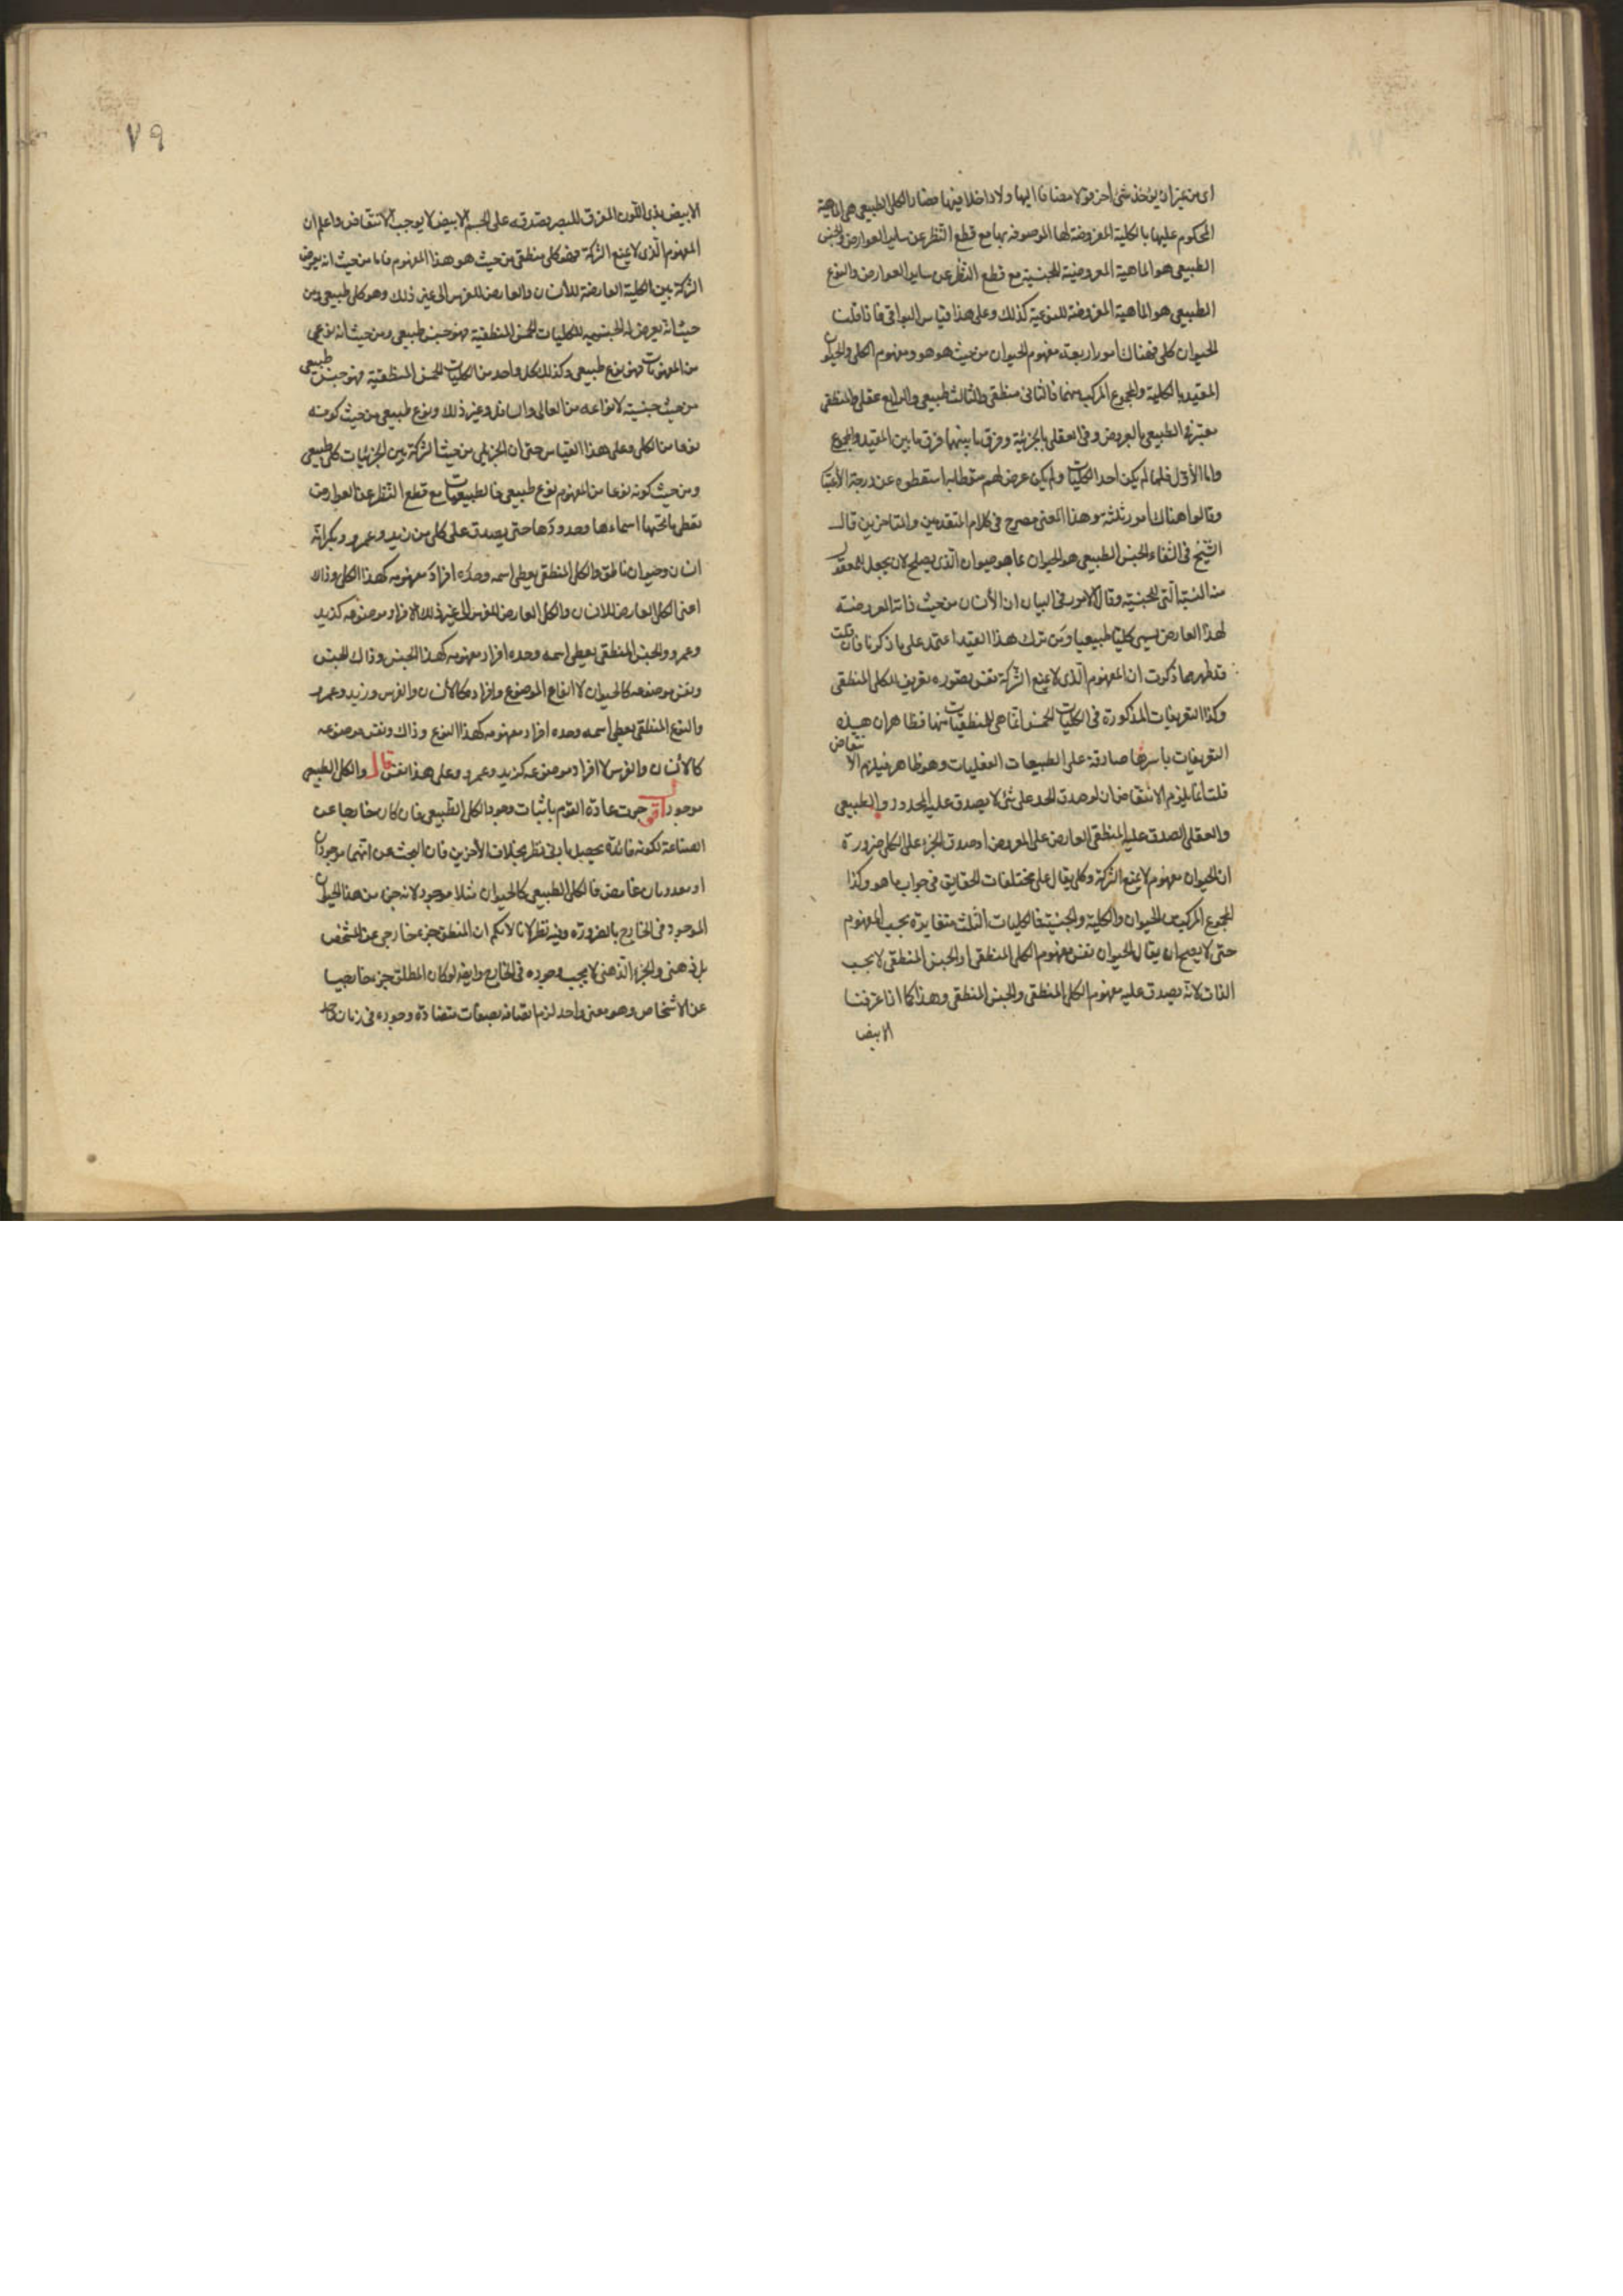 اى من غير ان يؤخذ شئ آخر لا مضافا اليها ولا داخلا فيها فصار الكلى الطبيعى هى الماهية
المحكوم عليها بالكلية المعروضة لها الموصوفه بها مع قطع النظر عن ساير العوارض والجنس
الطبيعى هو الماهية المعروضة للجنسية مع قطع النظر عن ساير العوارض والنوع
الطبيعى هو الماهية المعروضة للنوعية كذلك وعلى هذا قياس البواقى فاذا قلت
الحيوان كلى فهناك امور اربعة مفهوم الحيوان من حيث هو هو ومفهوم الكلى والحيوان
المقيد بالكلية والمجموع المركب منهما فالثانى منطقى والثالث طبيعى والرابع عقلى والمنطقى
معتبر فى الطبيعى بالعروض وفى العقلى بالجزئية وفرق ما بينهما فرق ما بين المقيد والمجموع
واما الاول فلما لم يكن احد الكليات ولم يكن غرض لهم متعلقا به اسقطوه عن درجة الاعتبار
وقالوا هناك امور ثلثه وهذا المعنى مصرح فى كلام المتقدمين والمتاخرين قال
الشيخ فى الشفاء الجنس الطبيعى هو الحيوان بما هو حيوان الذى يصلح لان يجعل للمعقول
منه النسبة التى للجنسية وقال الامور فى البيان ان الأنسان من حيث ذاته المعروضة
لهذا العارض يسمى كليا طبيعيا ومن ترك هذا القيد اعتمد على ما ذكرنا فان قلت
قد ظهر مما ذكرت ان المفهوم الذى لا يمنع الشركة نفس تصوره تعريف للكلى المنطقى
وكذا التعريفات المذكورة فى الكليات الخمس انما هى للمنطقيات منها فظاهر ان هذه
التعريفات باسرها صادقة على الطبيعيات العقليات وهو ظاهر فيلزم الانتقاض
قلت انما يلزم الانتقاض ان لو صدق الحد على شئ لا يصدق عليه المحدود والطبيعى
والعقلى الصدق عليه المنطقى العارض على المعروض او صدق الجزء على الكلى ضرورة
ان الحيوان مفهوم لا يمنع الشركة وكلى يقال على مختلفات الحقايق فى جواب ما هو وكذا
المجموع المركب من الحيوان والكلية والجنسية فالكليات الثلث متغايرة بحسب المفهوم
حتى لا يصح ان يقال الحيوان نفس مفهوم الكلى المنطقى او الجنس المنطقى لا بحسب
الذات لانه يصدق عليه مفهوم الكلى المنطقى والجنس المنطقى وهذا كما اذا عرفنا
الابيض
٧٩
الابيض بذى اللون المفرق للبصر بصدقه على الجسم الابيض لا يوجب الانتقاض واعلم ان
المفهوم الذى لا يمنع الشركة فهو كلى منطقى من حيث هو هذا المفهوم فاما من حيث انه يعرض
الشركة بين الكلية العارضة للأنسان والعارض للفرس الى غير ذلك وهو كلى طبيعى ومن
حيث انه يعرض له الجنسيه للكليات الخمس المنطقية فهو جنس طبيعى ومن حيث انه نوعى
من المفهومات فهو نوع طبيعى وكذلك كل واحد من الكليات الخمس المنطقية فهو جنس طبيعى
من حيث جنسيته لانواعه من العالى والسافل وغير ذلك ونوع طبيعى من حيث كونه
نوعا من الكلى وعلى هذا القياس حتى ان الجزئى من حيث الشركة بين الجزئيات كلى طبيعى
ومن حيث كونه نوعا من المفهوم نوع طبيعى فالطبيعيات مع قطع النظر عن العوارض
تعطى ما تحتها اسماءها وحدودها حتى يصدق على كل من زيد وعمرو وبكر انه
انسان وحيوان ناطق والكلى المنطقى يعطى اسمه وحده افراد مفهومه كهذا الكلى وذاك
اعنى الكلى العارض للانسان والكلى العارض للفرس الى غير ذلك لا افراد موضوعه كزيد
وعمرو والجنس المنطقى يعطى اسمه وحده افراد مفهومه كهذا الجنس وذاك الجنس
ونفس موضوعه كالحيوان لا انواع الموضوع وافراده كالأنسان والفرس وزيد وعمرو
والنوع المنطقى يعطى اسمه وحده افراد مفهومه كهذا النوع وذاك ونفس موضوعه
كالأنسان والفرس لا افراد موضوعه كزيد وعمرو وعلى هذا فقس قال والكلى الطبيعى
موجود اقول جرت عادة القوم باثبات وجود الكلى الطبيعى فان كان خارجا عن
الصناعة لكونه فائدة يحصل بادنى نظر بخلاف الأخرين فان البحث عن انهما موجودان
او معدومان غامض فالكلى الطبيعى كالحيوان مثلا موجود لانه جزء من هذا الحيوان
الموجود فى الخارج بالضرورة وفيه نظر لانا لا نحكم ان المنطق جزء خارجى عن الشخص
بل ذهنى والجزء الذهنى لا يجب وجوده فى الخارج وايضا لو كان المطلق جزء خارجيا
عن الاشخاص وهو معنى واحد لزم اتصافه بصفات متضادة ووجوده فى زمان واحد